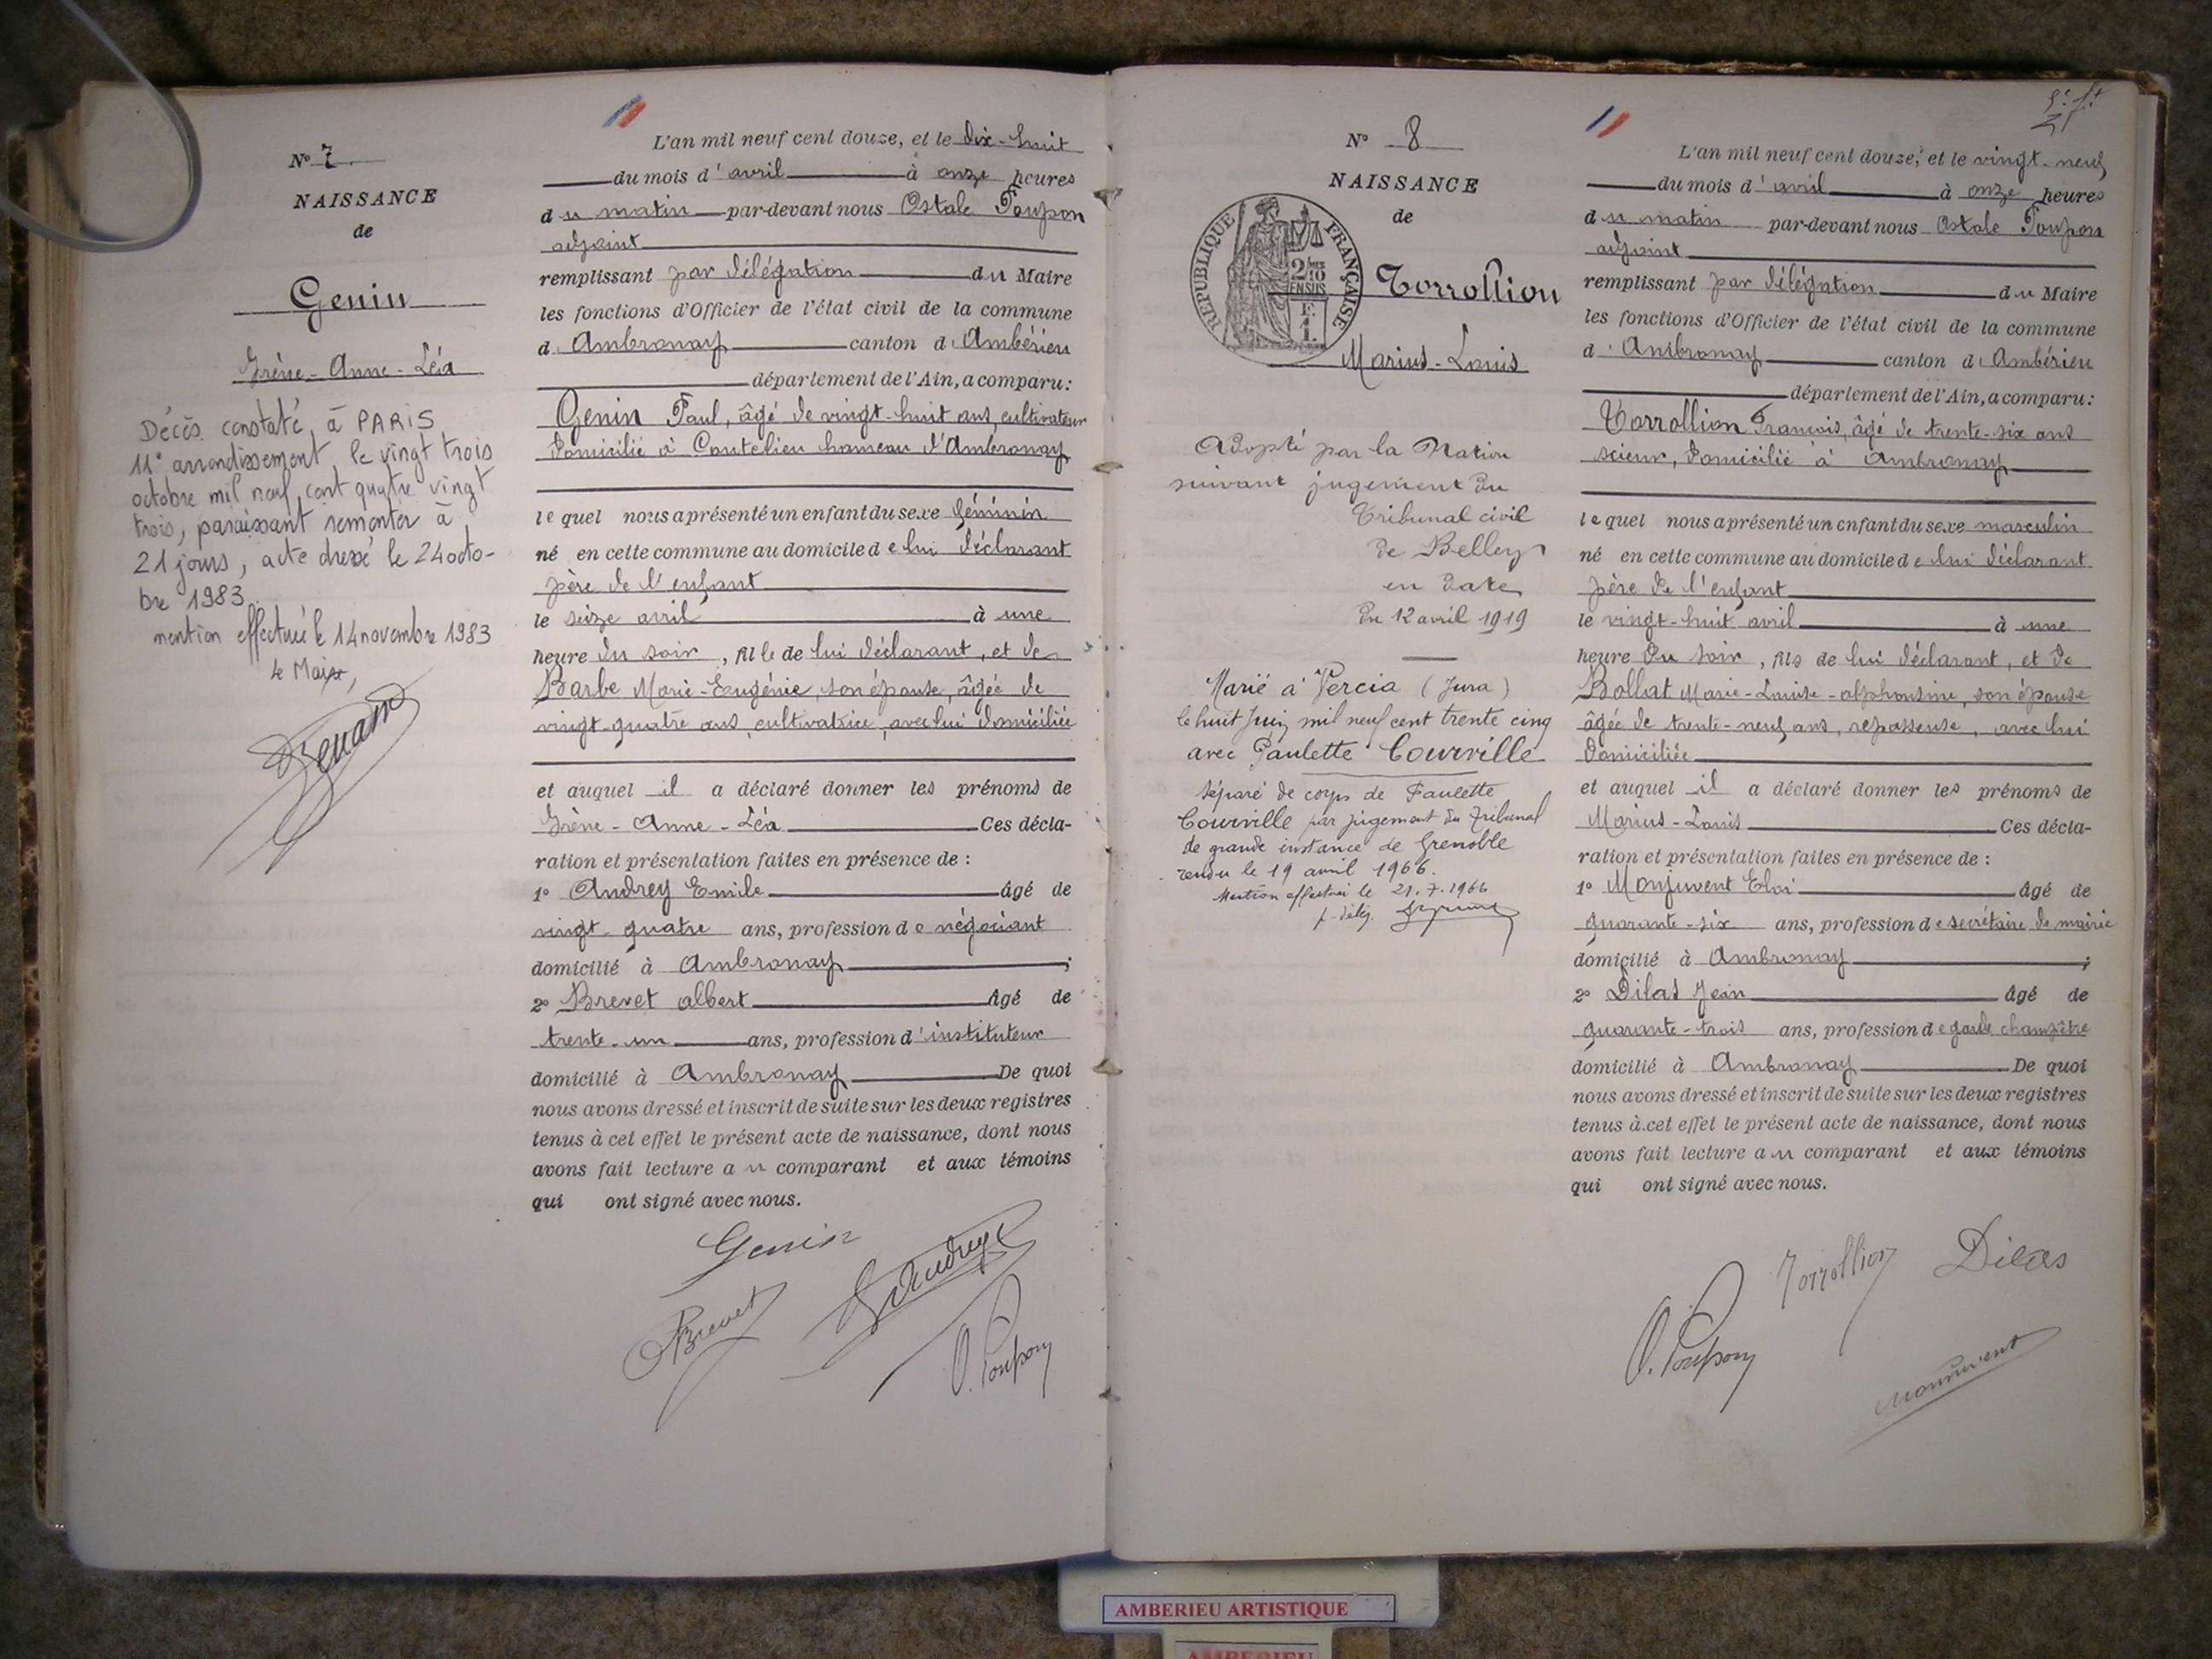 N° 7
NAISSANCE
de
Genin
Irène-Anne-Léa
Décès constaté à PARIS
11° arrondissement, le vingt trois
octobre mil neuf cent quatre vingt
trois, paraissant remonter à
21 jours, acte dressé le 24 octo-
bre 1983.
mention effectuée le 14 novembre 1983
Le Maire,
L'an mil neuf cent douze, et le dix-huit
du mois d'avril à onze heures
du matin par-devant nous Ostale Poupon
adjoint
remplissant par délégation du Maire
les fonctions d'Officier de l'état civil de la commune
d'Ambronay canton d'Ambérieu
département de l'Ain, a comparu:
Genin Paul, âgé de vingt-huit ans, cultivateur
domicilié à Coutelieu hameau d'Ambronay
lequel nous a présenté un enfant du sexe féminin
né en cette commune au domicile de lui déclarant
père de l'enfant
le seize avril à une
heure du soir, fille de lui déclarant, et de
Barbe Marie-Eugénie, son épouse, âgée de
vingt-quatre ans, cultivatrice, avec lui domiciliée
et auquel il a déclaré donner les prénoms de
Irène-Anne-Léa Ces décla-
ration et présentation faites en présence de :
1° Andrey Emile âgé de
vingt-quatre ans, profession de négociant
domicilié à Ambronay ;
2° Brevet albert âgé de
trente-un ans, profession d'instituteur
domicilié à Ambronay De quoi
nous avons dressé et inscrit de suite sur les deux registres
tenus à cet effet le présent acte de naissance, dont nous
avons fait lecture au comparant et aux témoins
qui ont signé avec nous.
Genin
Brevet
O. Poupon
N° 8
NAISSANCE
de
RÉPUBLIQUE FRANÇAISE
2/10 EN SUS
F. 1.
Torrollion
Marius-Louis
Adopté par la Nation
suivant jugement du
Tribunal civil
de Belley
en date
du 12 avril 1919
Marié à Vercia (Jura)
le huit Juin mil neuf cent trente cinq
avec Paulette Courville
Séparé de corps de Paulette
Courville par jugement du Tribunal
de grande instance de Grenoble
rendu le 19 avril 1966.
Mention effectuée le 21.7.1966
L'an mil neuf cent douze, et le vingt-neuf
du mois d'avril à onze heures
du matin par-devant nous Ostale Poupon
adjoint
remplissant par délégation du Maire
les fonctions d'Officier de l'état civil de la commune
d'Ambronay canton d'Ambérieu
département de l'Ain, a comparu:
Torrollion François, âgé de trente-six ans
scieur, domicilié à Ambronay
lequel nous a présenté un enfant du sexe masculin
né en cette commune au domicile de lui déclarant
père de l'enfant
le vingt-huit avril à une
heure du soir, fils de lui déclarant, et de
Bollat Marie-Louise-alphonsine, son épouse
âgée de trente-neuf ans, repasseuse, avec lui
domiciliée
et auquel il a déclaré donner les prénoms de
Marius-Louis Ces décla-
ration et présentation faites en présence de :
1° Monjuvent Eloi âgé de
quarante-six ans, profession de secrétaire de mairie
domicilié à Ambronay ;
2° Dilas Jean âgé de
quarante-trois ans, profession de garde champêtre
domicilié à Ambronay De quoi
nous avons dressé et inscrit de suite sur les deux registres
tenus à cet effet le présent acte de naissance, dont nous
avons fait lecture au comparant et aux témoins
qui ont signé avec nous.
Torrollion Dilas
O. Poupon
Monjuvent
AMBERIEU ARTISTIQUE
AMBERIEU